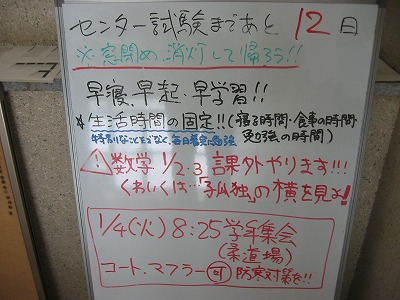 センター試験まであと 12日
※窓閉め、消灯して帰ろう!!
早寝、早起、早学習!!
生活時間の固定!!(寝る時間・食事の時間・
勉強の時間)
特別なことをでなく、毎日着実に勉強
数学 1/2.3 課外やります!!!
くわしくは…「孤独」の横を見よ!
1/4(火) 8:25 学年集会
(柔道場)
コート、マフラー 可 防寒対策を!!